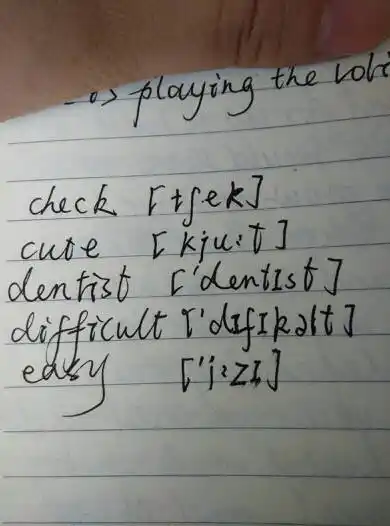 playing the
check [tʃek]
cute [kju:t]
dentist ['dentIst]
difficult ['dIfIkəlt]
easy ['i:zI]